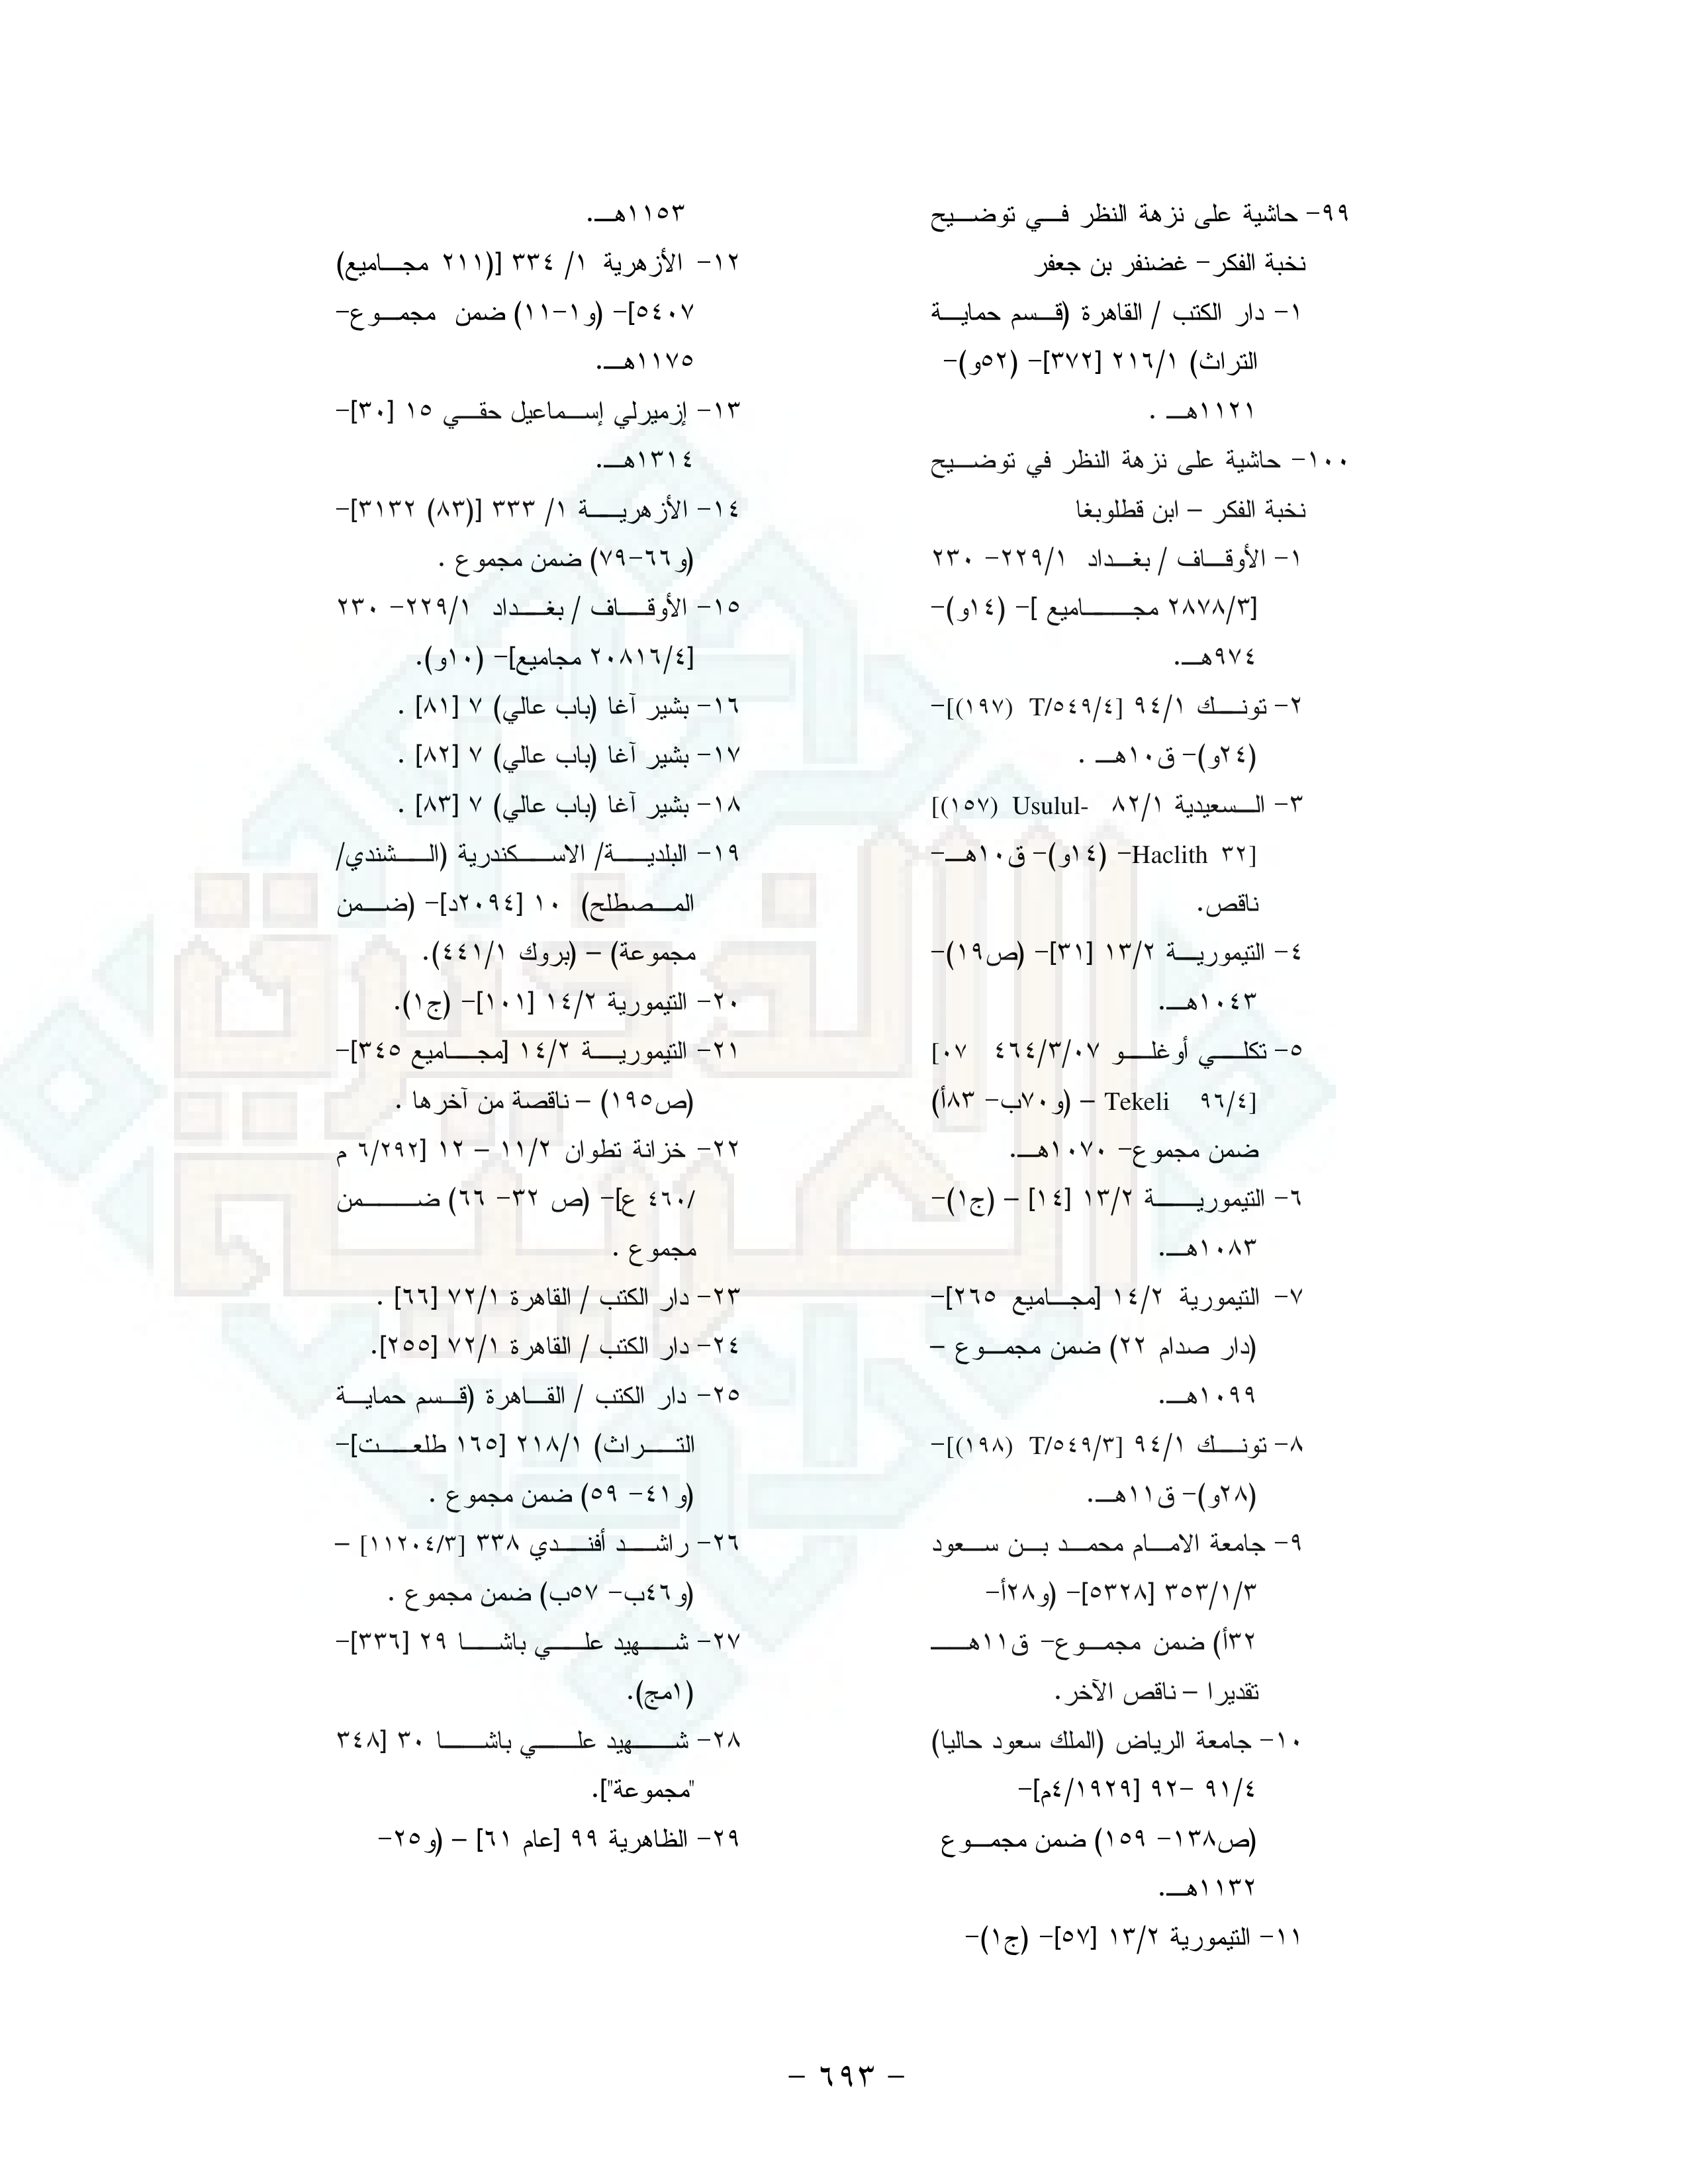 ٩٩- حاشية على نزهة النظر في توضيح
نخبة الفكر- غضنفر بن جعفر
١- دار الكتب / القاهرة (قسم حماية
التراث) ٢١٦/١ [٣٧٢]- (٥٢و)-
١١٢١هـ .
١٠٠- حاشية على نزهة النظر في توضيح
نخبة الفكر – ابن قطلوبغا
١- الأوقاف / بغداد ٢٢٩/١- ٢٣٠
[٢٨٧٨/٣ مجاميع ]- (١٤و)-
٩٧٤هـ.
٢- تونك ٩٤/١ [T/٥٤٩/٤ (١٩٧)]-
(٢٤و)- ق١٠هـ .
٣- السعيدية ٨٢/١ Usulul- (١٥٧)]
[٣٢ Haclith- (١٤و)- ق١٠هـ-
ناقص.
٤- التيمورية ١٣/٢ [٣١]- (ص١٩)-
١٠٤٣هـ.
٥- تكلي أوغلو ٤٦٤/٣/٠٧ ٠٧]
[٩٦/٤ Tekeli – (و٧٠ب- ٨٣أ)
ضمن مجموع- ١٠٧٠هـ.
٦- التيمورية ١٣/٢ [١٤] – (ج١)-
١٠٨٣هـ.
٧- التيمورية ١٤/٢ [مجاميع ٢٦٥]-
(دار صدام ٢٢) ضمن مجموع –
١٠٩٩هـ.
٨- تونك ٩٤/١ [T/٥٤٩/٣ (١٩٨)]-
(٢٨و)- ق١١هـ.
٩- جامعة الامام محمد بن سعود
٣٥٣/١/٣ [٥٣٢٨]- (و٢٨أ-
٣٢أ) ضمن مجموع- ق١١هـ
تقديرا – ناقص الآخر.
١٠- جامعة الرياض (الملك سعود حاليا)
٩١/٤ -٩٢ [٤/١٩٢٩م]-
(ص١٣٨- ١٥٩) ضمن مجموع
١١٣٢هـ.
١١- التيمورية ١٣/٢ [٥٧]- (ج١)-
١١٥٣هـ.
١٢- الأزهرية ١/ ٣٣٤ [(٢١١ مجاميع)
٥٤٠٧]- (و١-١١) ضمن مجموع-
١١٧٥هـ.
١٣- إزميرلي إسماعيل حقي ١٥ [٣٠]-
١٣١٤هـ.
١٤- الأزهرية ١/ ٣٣٣ [(٨٣) ٣١٣٢]-
(و٦٦-٧٩) ضمن مجموع .
١٥- الأوقاف / بغداد ٢٢٩/١- ٢٣٠
[٢٠٨١٦/٤ مجاميع]- (١٠و).
١٦- بشير آغا (باب عالي) ٧ [٨١] .
١٧- بشير آغا (باب عالي) ٧ [٨٢] .
١٨- بشير آغا (باب عالي) ٧ [٨٣] .
١٩- البلدية/ الاسكندرية (الشندي/
المصطلح) ١٠ [٢٠٩٤د]- (ضمن
مجموعة) – (بروك ٤٤١/١).
٢٠- التيمورية ١٤/٢ [١٠١]- (ج١).
٢١- التيمورية ١٤/٢ [مجاميع ٣٤٥]-
(ص١٩٥) – ناقصة من آخرها .
٢٢- خزانة تطوان ١١/٢ – ١٢ [٦/٢٩٢ م
/٤٦٠ ع]- (ص ٣٢- ٦٦) ضمن
مجموع .
٢٣- دار الكتب / القاهرة ٧٢/١ [٦٦] .
٢٤- دار الكتب / القاهرة ٧٢/١ [٢٥٥].
٢٥- دار الكتب / القاهرة (قسم حماية
التراث) ٢١٨/١ [١٦٥ طلعت]-
(و٤١- ٥٩) ضمن مجموع .
٢٦- راشد أفندي ٣٣٨ [١١٢٠٤/٣] –
(و٤٦ب- ٥٧ب) ضمن مجموع .
٢٧- شهيد علي باشا ٢٩ [٣٣٦]-
(١مج).
٢٨- شهيد علي باشا ٣٠ [٣٤٨
"مجموعة"].
٢٩- الظاهرية ٩٩ [عام ٦١] – (و٢٥-
- ٦٩٣ -